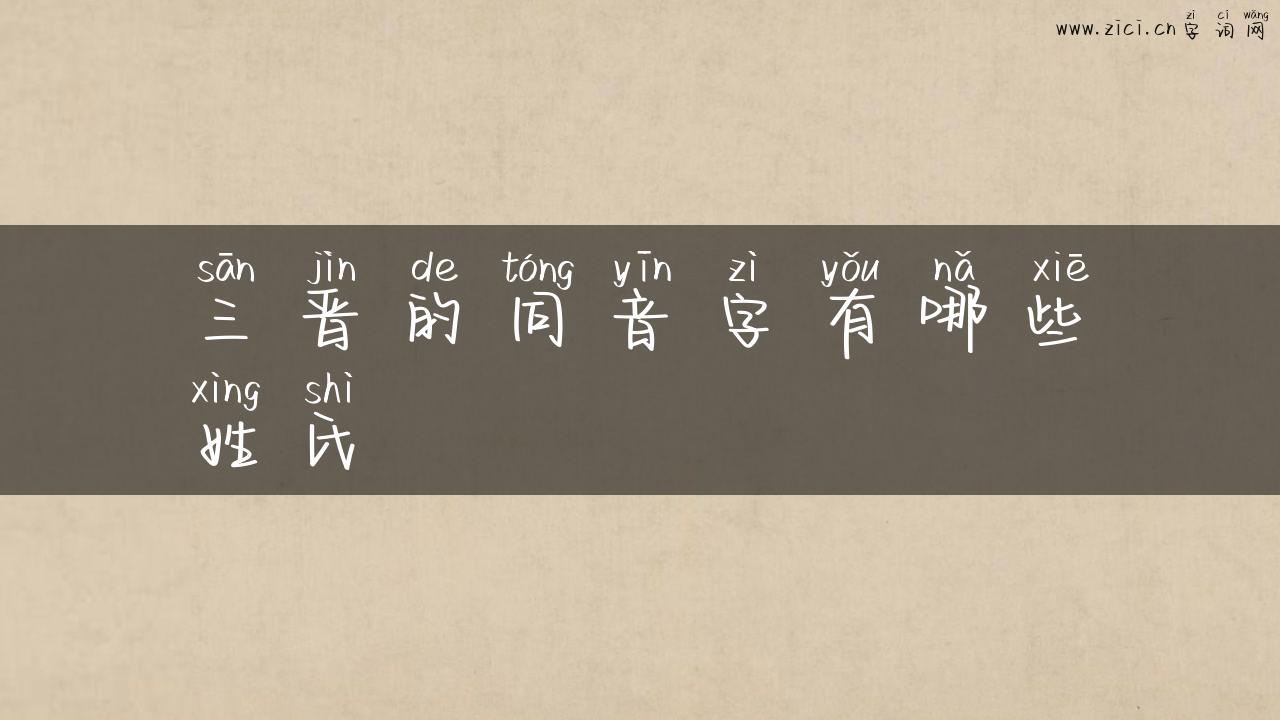 zì cí wǎng
www.zici.cn 字 词 网
sān jìn de tóng yīn zì yǒu nǎ xiē
三 晋 的 同 音 字 有 哪 些
xìng shì
姓 氏